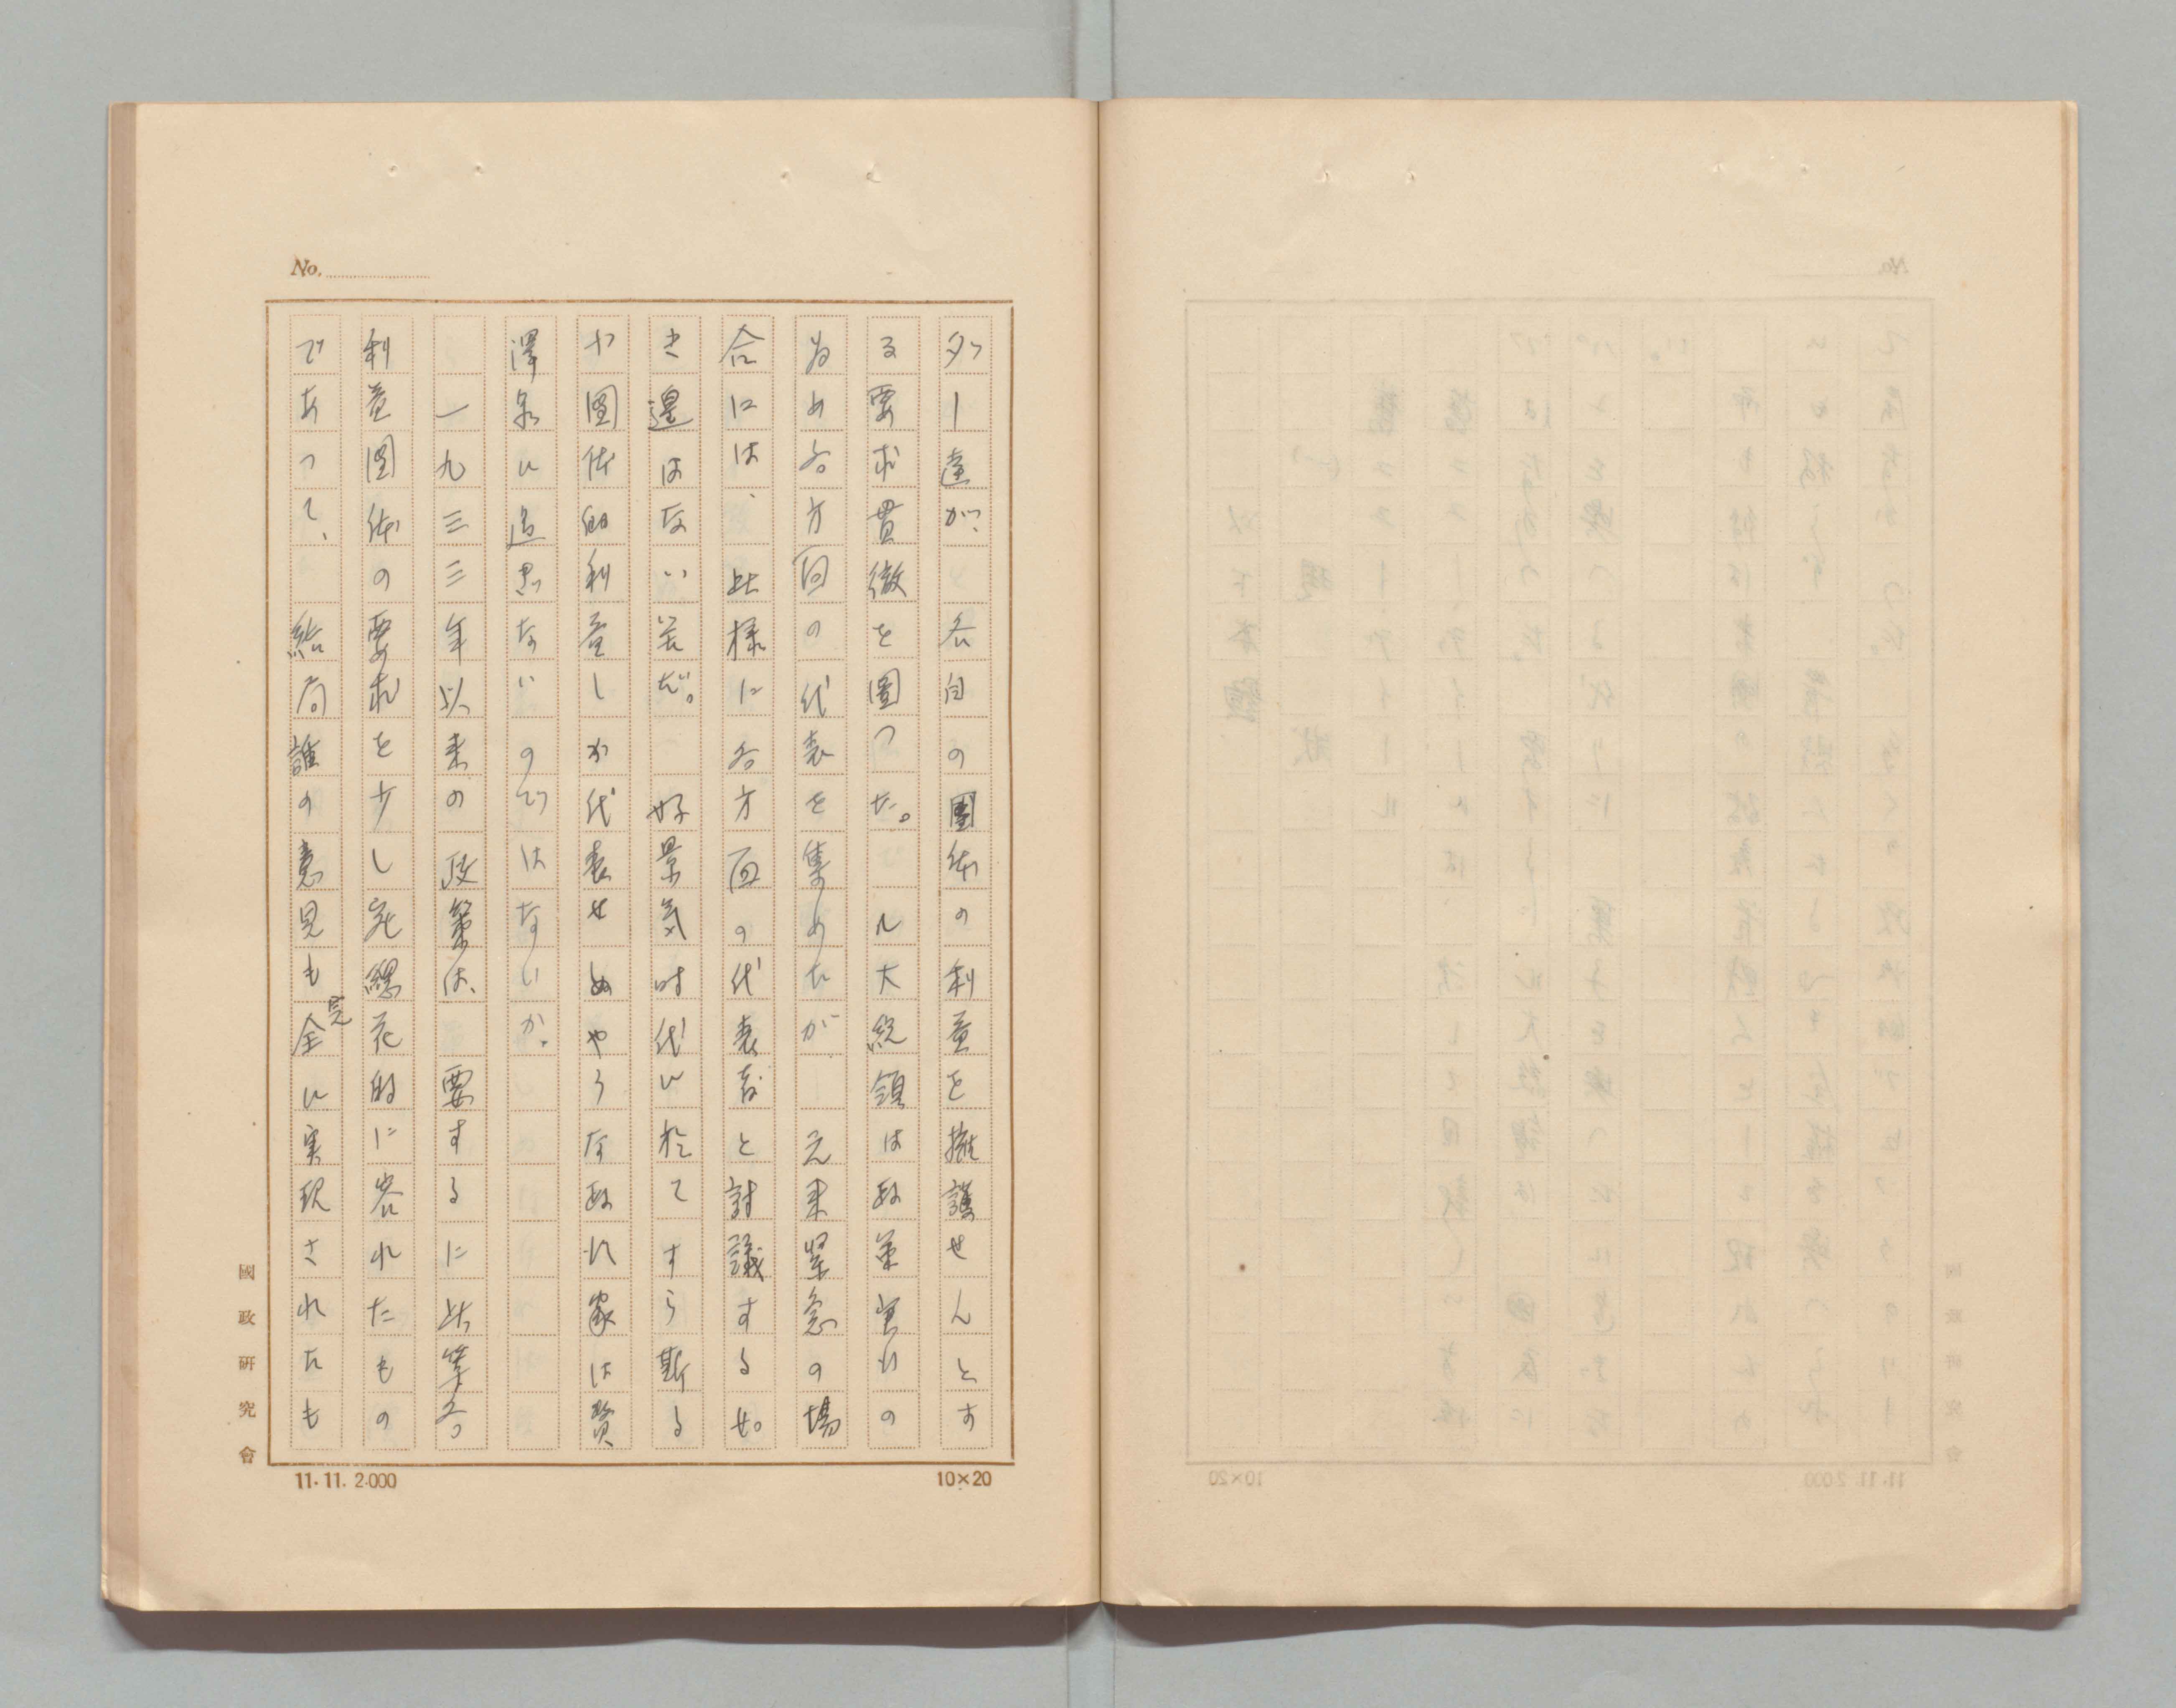 No.
ダー達が、各自の團体の利益を擁護せんとす
る要求貫徹を圖つた。ル大統領は政策実行の
為め各方面の代表を集めたが 元来緊急の場
合には、此様に各方面の代表者と討議する如
き遑はない筈だ。 好景気時代に於てすら斯る
小團体的利益しか代表せぬやうな政治家は贅
澤に過ぎないのではないか。
一九三三年以来の政策は、 要するに此等各
利益團体の要求を少し宛總花的に容れたもの
であつて、 結局誰の意見も完全に実現されたも
國政研究會
11.11.2.000
10×20